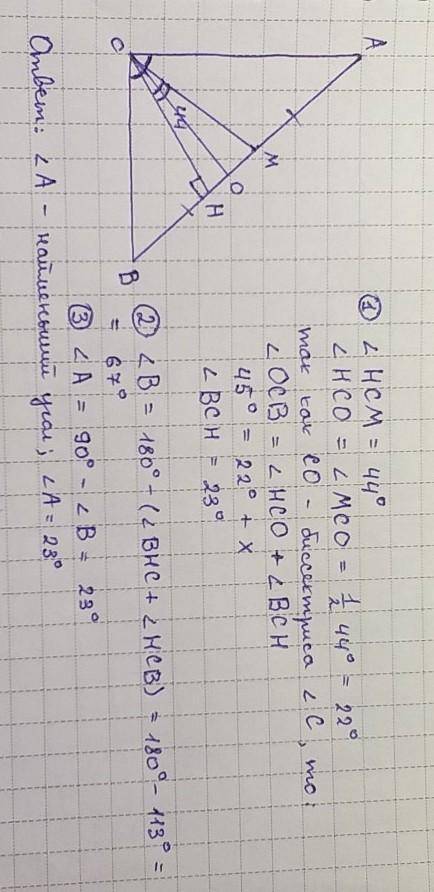 A
C
44
M
O
H
B
① ∠ HCM = 44°
∠ HCO = ∠ MCO = 1/2 44° = 22°
так как CO - биссектриса ∠ C, то:
∠ OCB = ∠ HCO + ∠ BCH
45° = 22° + x
∠ BCH = 23°
② ∠ B = 180° - (∠ BHC + ∠ HCB) = 180° - 113° =
= 67°
③ ∠ A = 90° - ∠ B = 23°
Ответ: ∠ A - наименьший угол; ∠ A = 23°